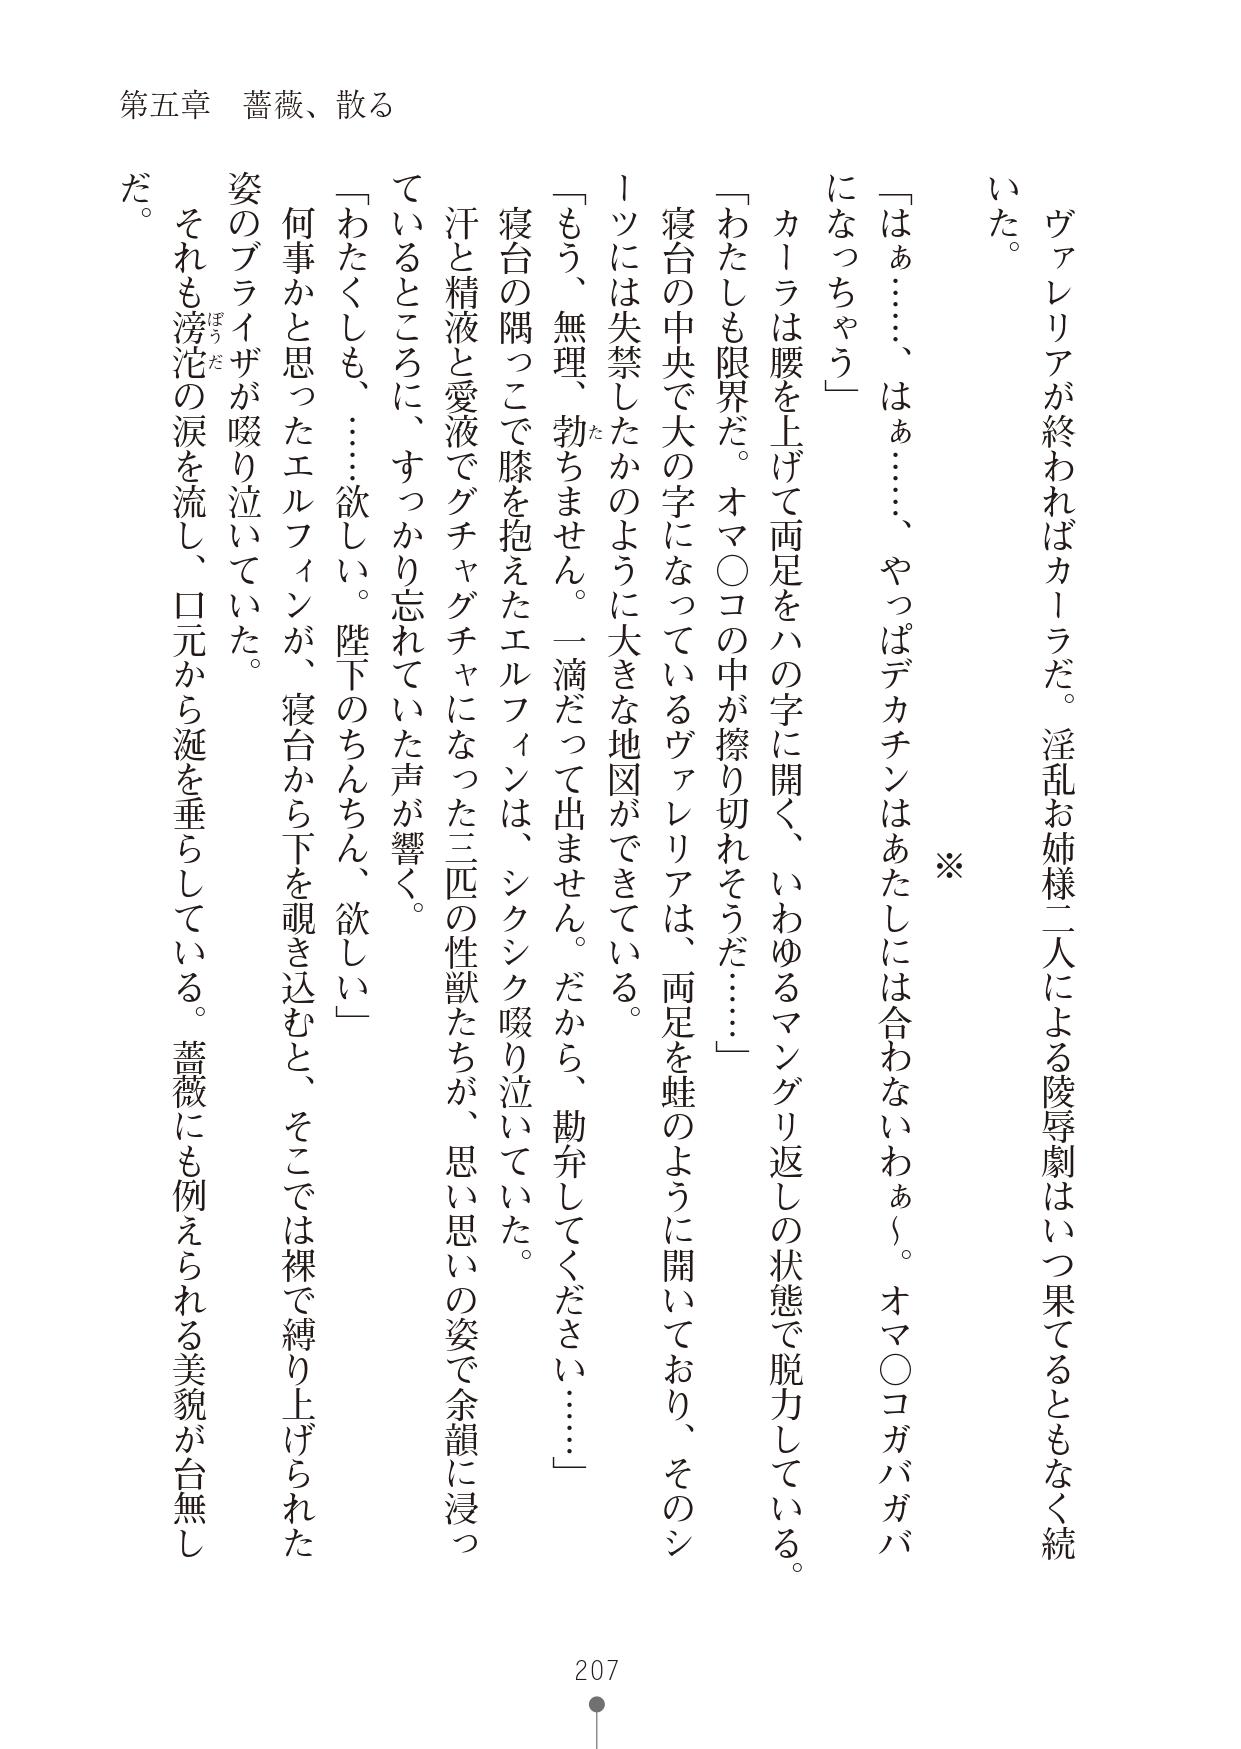 第五章　薔薇、散る
　ヴァレリアが終わればカーラだ。淫乱お姉様二人による陵辱劇はいつ果てるともなく続
いた。
※
「はぁ……、はぁ……、やっぱデカチンはあたしには合わないわぁ～。オマ〇コガバガバ
になっちゃう」
　カーラは腰を上げて両足をハの字に開く、いわゆるマングリ返しの状態で脱力している。
「わたしも限界だ。オマ〇コの中が擦り切れそうだ……」
　寝台の中央で大の字になっているヴァレリアは、両足を蛙のように開いており、そのシ
ーツには失禁したかのように大きな地図ができている。
「もう、無理、勃ちません。一滴だって出ません。だから、勘弁してください……」
　寝台の隅っこで膝を抱えたエルフィンは、シクシク啜り泣いていた。
　汗と精液と愛液でグチャグチャになった三匹の性獣たちが、思い思いの姿で余韻に浸っ
ているところに、すっかり忘れていた声が響く。
「わたくしも、……欲しい。陛下のちんちん、欲しい」
　何事かと思ったエルフィンが、寝台から下を覗き込むと、そこでは裸で縛り上げられた
姿のブライザが啜り泣いていた。
　それも滂沱の涙を流し、口元から涎を垂らしている。薔薇にも例えられる美貌が台無し
だ。
た
ぼうだ
207